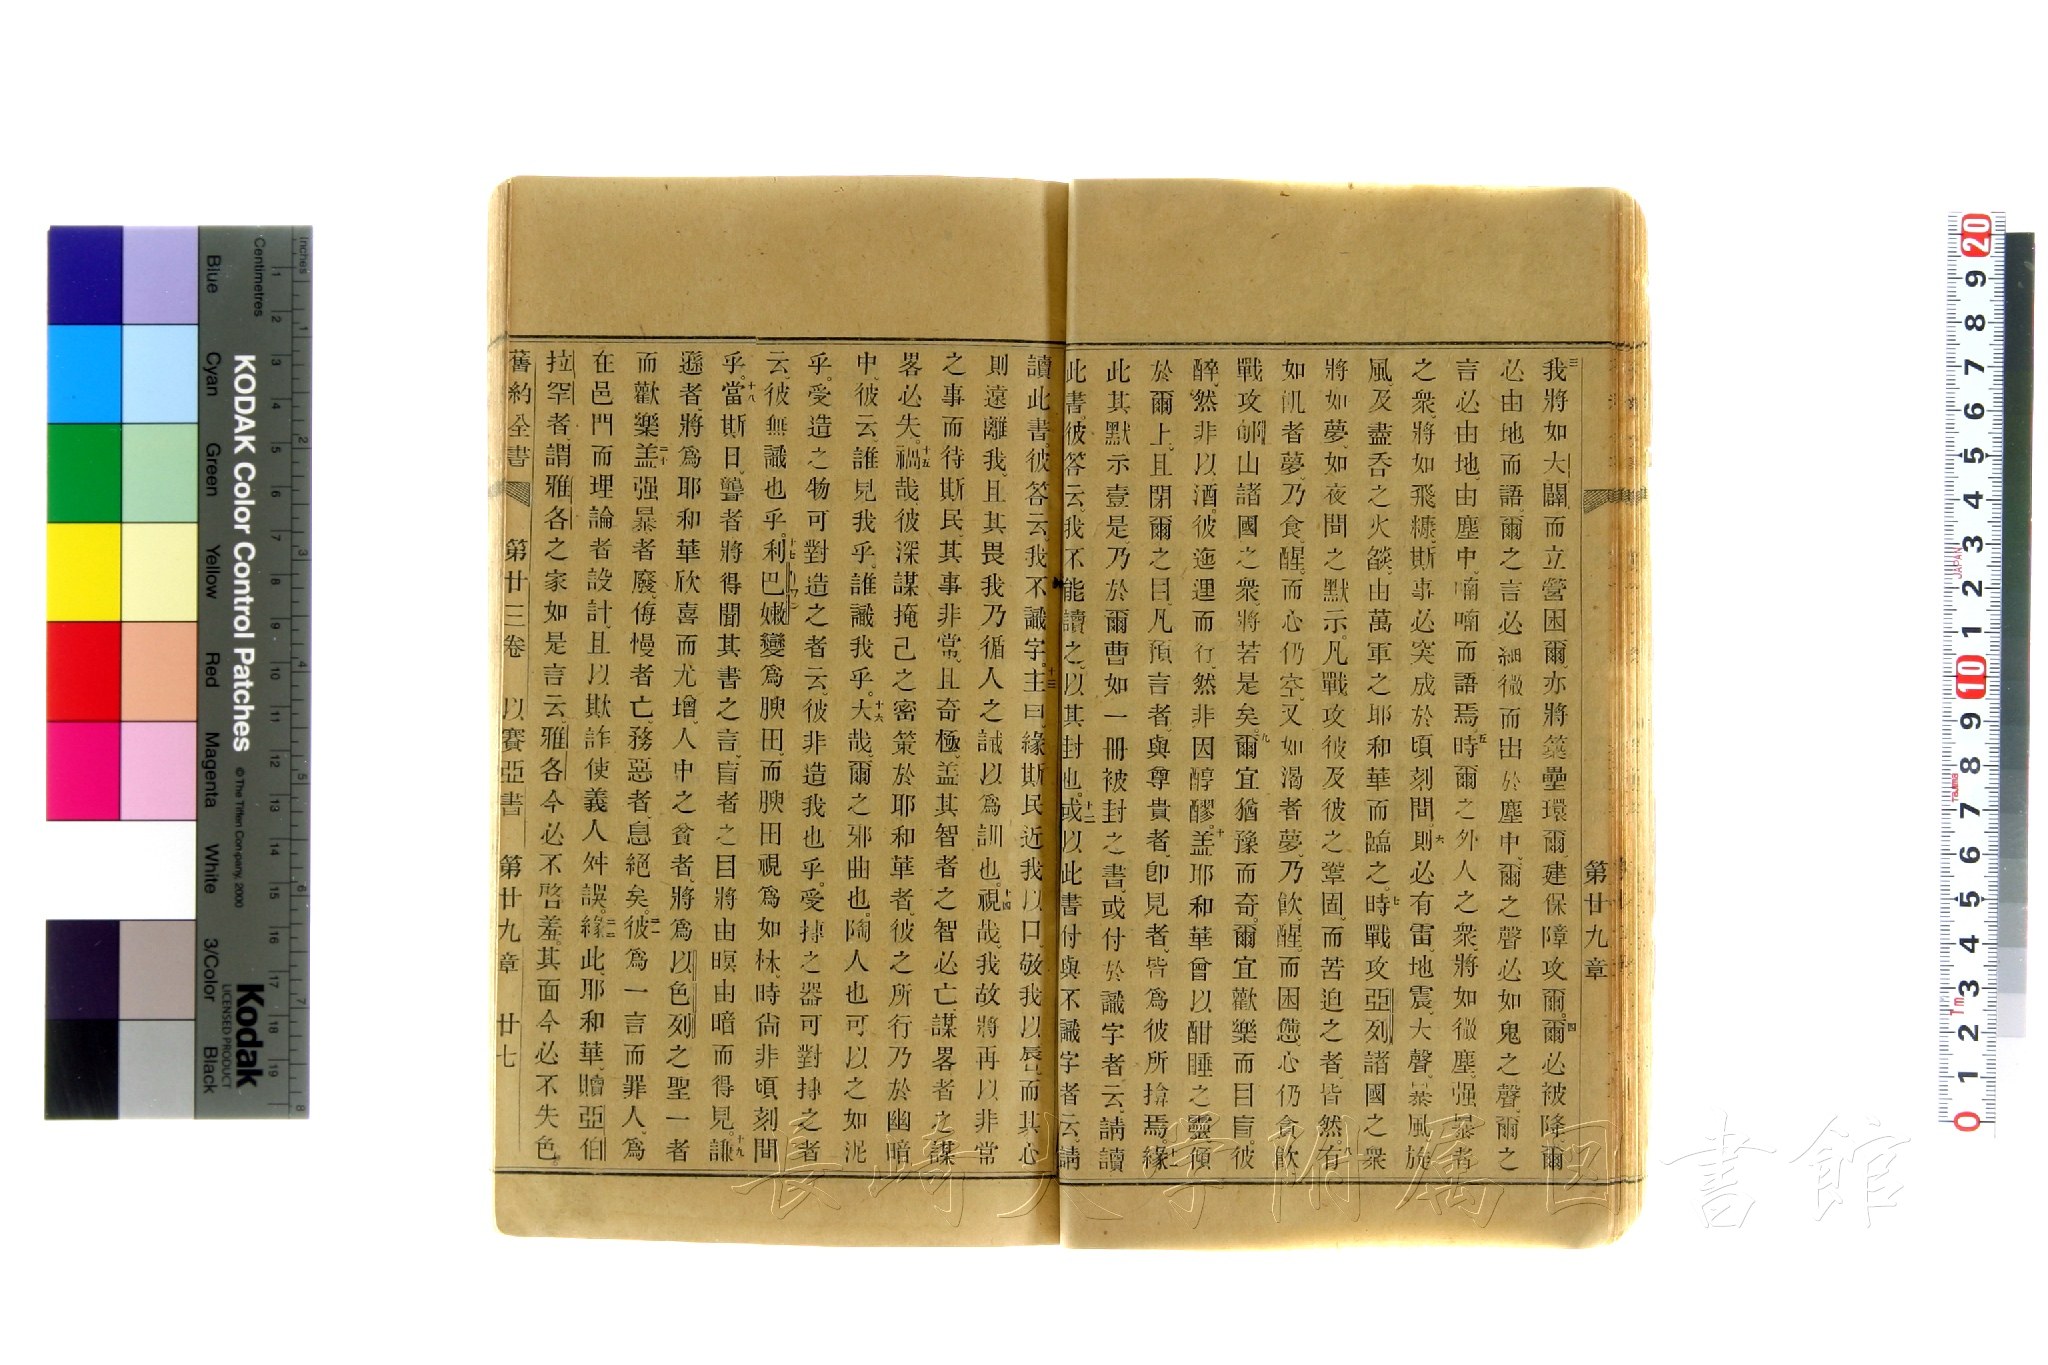 第廿九章
三我將如大闢而立營困爾、亦將築壘環爾、建保障攻爾。四爾必被降、爾
必由地而語、爾之言必細微而出於塵中、爾之聲必如鬼之聲、爾之
言必由地、由塵中、喃喃而語焉。五時爾之外人之衆、將如微塵、强暴者
之衆、將如飛糠、斯事必突成於頃刻間。六則必有雷地震、大聲、暴風旋
風、及盡吞之火燄、由萬軍之耶和華而臨之。七時戰攻亞列諸國之衆
將如夢、如夜間之默示。凡戰攻彼及彼之鞏固、而苦迫之者、皆然。八有
如飢者夢、乃食、醒、而心仍空、又如渴者夢、乃飲、醒、而困憊、心仍貪飲
戰攻郇山諸國之衆、將若是矣。九爾宜猶豫而奇。爾宜歡樂而目盲。彼
醉、然非以酒、彼迤邐而行、然非因醇醪。十蓋耶和華曾以酣睡之靈、傾
於爾上、且閉爾之目、凡預言者、與尊貴者、卽見者、皆爲彼所揜焉。十一緣
此其默示壹是、乃於爾曹如一冊被封之書、或付於識字者云、請讀
此書、彼答云、我不能讀之、以其封也。十二或以此書付與不識字者云、請
讀此書。彼答云、我不識字。十三主曰、緣斯民近我以口、敬我以唇、而其心
則遠離我、且其畏我乃循人之誡以爲訓也。十四視哉、我故將再以非常
之事而待斯民、其事非常、且奇極、蓋其智者之智必亡、謀畧者之謀
畧必失。十五禍哉彼深謀掩己之密策於耶和華者、彼之所行乃於幽暗
中、彼云、誰見我乎。誰識我乎。十六大哉、爾之邪曲也。陶人也可以之如泥
乎。受造之物可對造之者云、彼非造我也乎。受摶之器可對摶之者
云、彼無識也乎。十七利巴嫩變爲腴田、而腴田視爲如林、時尙非頃刻間
乎。十八當斯日、聾者將得聞其書之言、盲者之目將由暝由暗而得見。十九謙
遜者、將爲耶和華欣喜而尤增、人中之貧者、將爲以色列之聖一者
而歡樂。二十蓋强暴者廢、侮慢者亡、務惡者、息絕矣。二一彼爲一言而罪人、爲
在邑門而理論者設計、且以欺詐使義人舛誤。二二緣此、耶和華、贖亞伯
拉罕者、謂雅各之家如是言云、雅各今必不啓羞、其面今必不失色。
舊約全書 第廿三卷 以賽亞書 第廿九章 廿七
KODAK Color Control Patches
© The Tiffen Company, 2000
Kodak
LICENSED PRODUCT
Inches
Centimetres
Blue Cyan Green Yellow Red Magenta White 3/Color Black
JAPAN
Tajima
長崎大学附属図書館